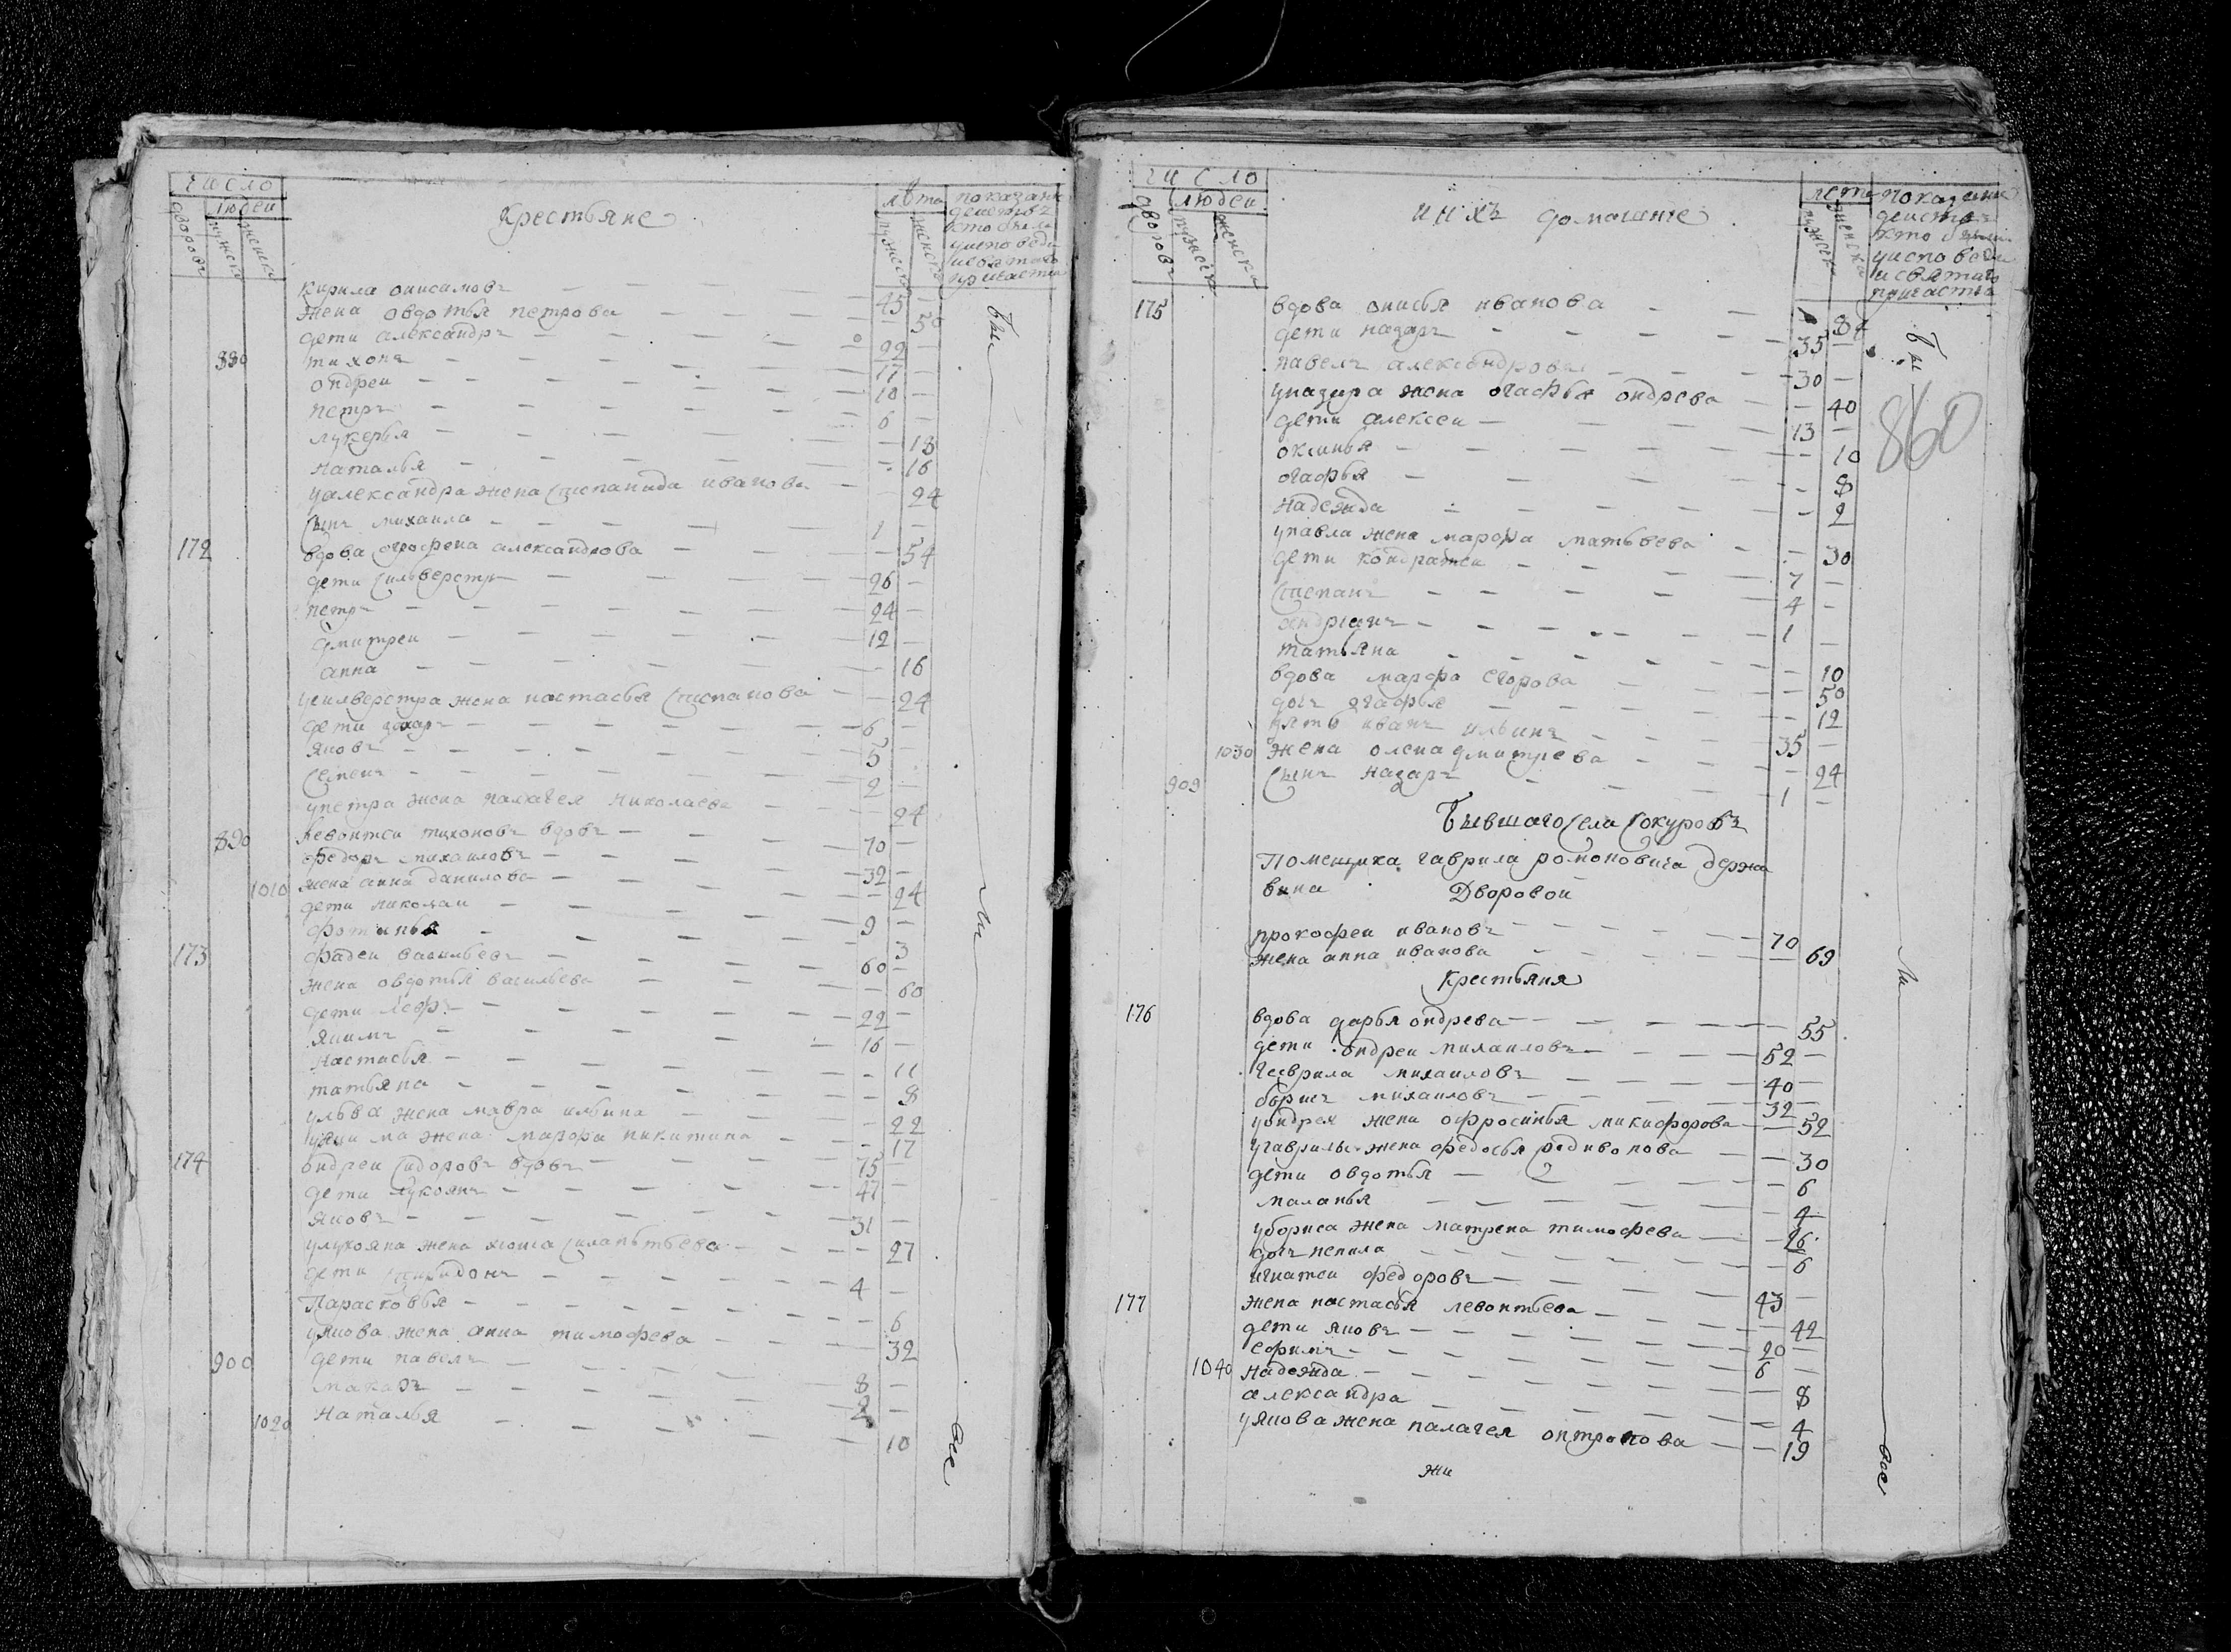 число
людей
дворовъ
мужеска
женска
Крестьяне
лѣта
мужеска
женска
показание
действъ
кто были
у исповеди
и святаго
причастия
Кирила онисимовъ — 45 —
жена овдотья петрова — — 50
дети александръ — 22 —
880 тихонъ — 17 —
ондреи — 10 —
петръ — 6 —
лукерья — — 13
наталья — — 16
у александра жена степанида иванова — — 24
сынъ михаила — 1 —
172 вдова огрофена александрова — — 54
дети силверстръ — 26 —
петръ — 24 —
дмитреи — 12 —
анна — — 16
у силверстра жена настасья степанова — — 24
дети захаръ — 6 —
яковъ — 5 —
2 —
у петра жена палагея николаева — — 24
890 левонтеи тихоновъ вдовъ — 70 —
федоръ михаиловъ — 32 —
1010 жена анна данилова — — 24
дети николаи — 9 —
фотинья — — 3
173 фадеи васильевъ — 60 —
жена овдотья васильева — — 60
дети 22 —
якимъ — 16 —
настасья — — 11
татьяна — — 8
у льва жена мавра ильина — — 22
у якима жена марфа никитина — — 17
174 ондреи сидоровъ вдовъ — 75 —
дети лукоянъ — 47 —
яковъ — 31 —
у лукояна жена — — 27
дети спиридонъ — 4 —
Парасковья — — 6
у якова жена анна тимофева — — 32
900 дети павелъ — 8 —
макаръ — 2 —
1020 наталья — — 10
бы
ли
все
число
людеи
дворовъ
мужеска
женска
и ихъ домашние
лета
мужеска
женска
показание
действъ
кто были
у исповеди
и святаго
причастия
175 вдова онисья иванова — — 84
дети назаръ — 35 —
павелъ александровы — 30 —
у назара жена огафья ондрева — — 40
дети алексеи — 13 —
оксинья — — 10
огафья — — 8
надежда — — 2
у павла жена марфа матвеева — — 30
дети кондратеи — 7 —
степанъ — 4 —
андриянъ — 1 —
татьяна — — 10
вдова марфа егорова — — 50
дочь огафья — — 12
зять иванъ ильинъ — 35 —
1030 жена олена дмитрева — — 24
909 сынъ назаръ — 1 —
860
Бывшаго села сокуровъ
Помещика гаврила романовича держа
вина Дворовои
прокофеи ивановъ — 70
жена анна иванова — — 69
Крестьяня
176 вдова дарья ондрева — — 55
дети ондреи михаиловъ — 52 —
гаврила михаиловъ — 40 —
борисъ михаиловъ — 32 —
у ондрея жена офросинья микифорова — — 52
у гаврилы жена федосья родивонова — — 30
дети овдотья — — 6
маланья — — 4
у бориса жена матрена тимофева — — 26
дочь ненила — — 6
177 игнатеи федоровъ — 43 —
жена настасья левонтьева — — 42
дети яковъ — 20 —
ефимъ — 6 —
1040 надежда — — 8
александра — — 4
у якова жена палагея онтропова — — 19
бы
ли
все
жи